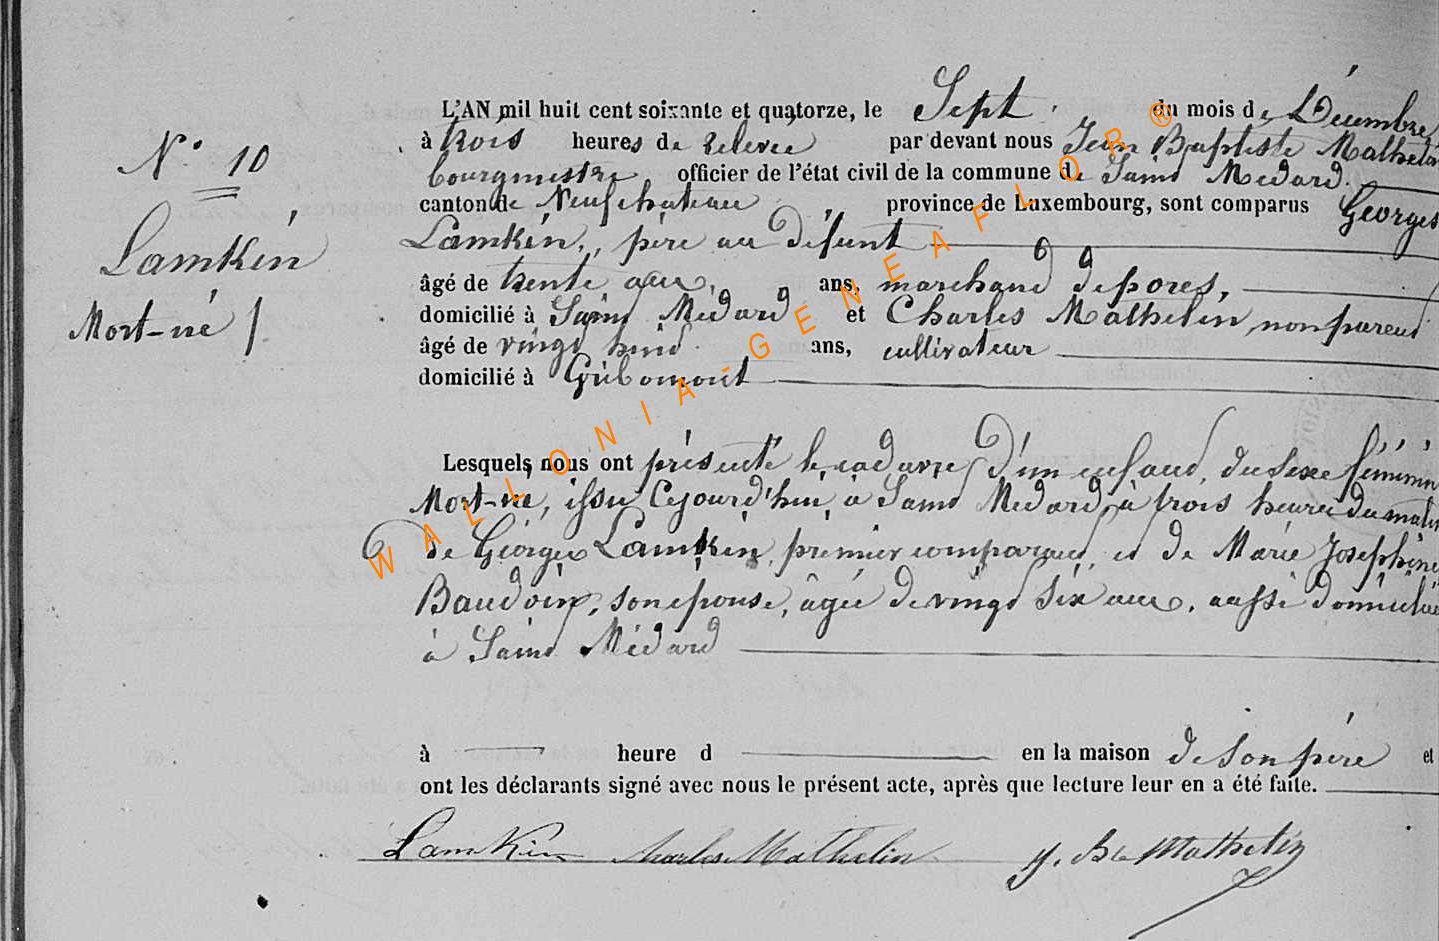 L'AN mil huit cent soixante et quatorze, le Sept du mois de Décembre
à trois heures de relevée par devant nous Jean Baptiste Mathelin
N° 10
bourgmestre officier de l'état civil de la commune de Saint Médard
canton de Neufchâteau province de Luxembourg, sont comparus Georges
Lamkin
Lamkin, père au défunt
âgé de trente ans, marchand de porcs,
Mort-né
domicilié à Saint Médard et Charles Mathelin, non parent
âgé de vingt huit ans, cultivateur
domicilié à Gribomont
Lesquels nous ont présenté le cadavre d'un enfant, du sexe féminin
Mort-né, issu Cejourd'hui, à Saint Médard, à trois heures du matin
de Georges Lamkin, premier comparant, et de Marie Josephine
Baudoin, son épouse, âgée de vingt six ans, aussi domiciliée
à Saint Médard
à heure d en la maison de son père et
ont les déclarants signé avec nous le présent acte, après que lecture leur en a été faite.
Lamkin Charles Mathelin J. Bte Mathelin
WALLONIA-GENEAFLOR®